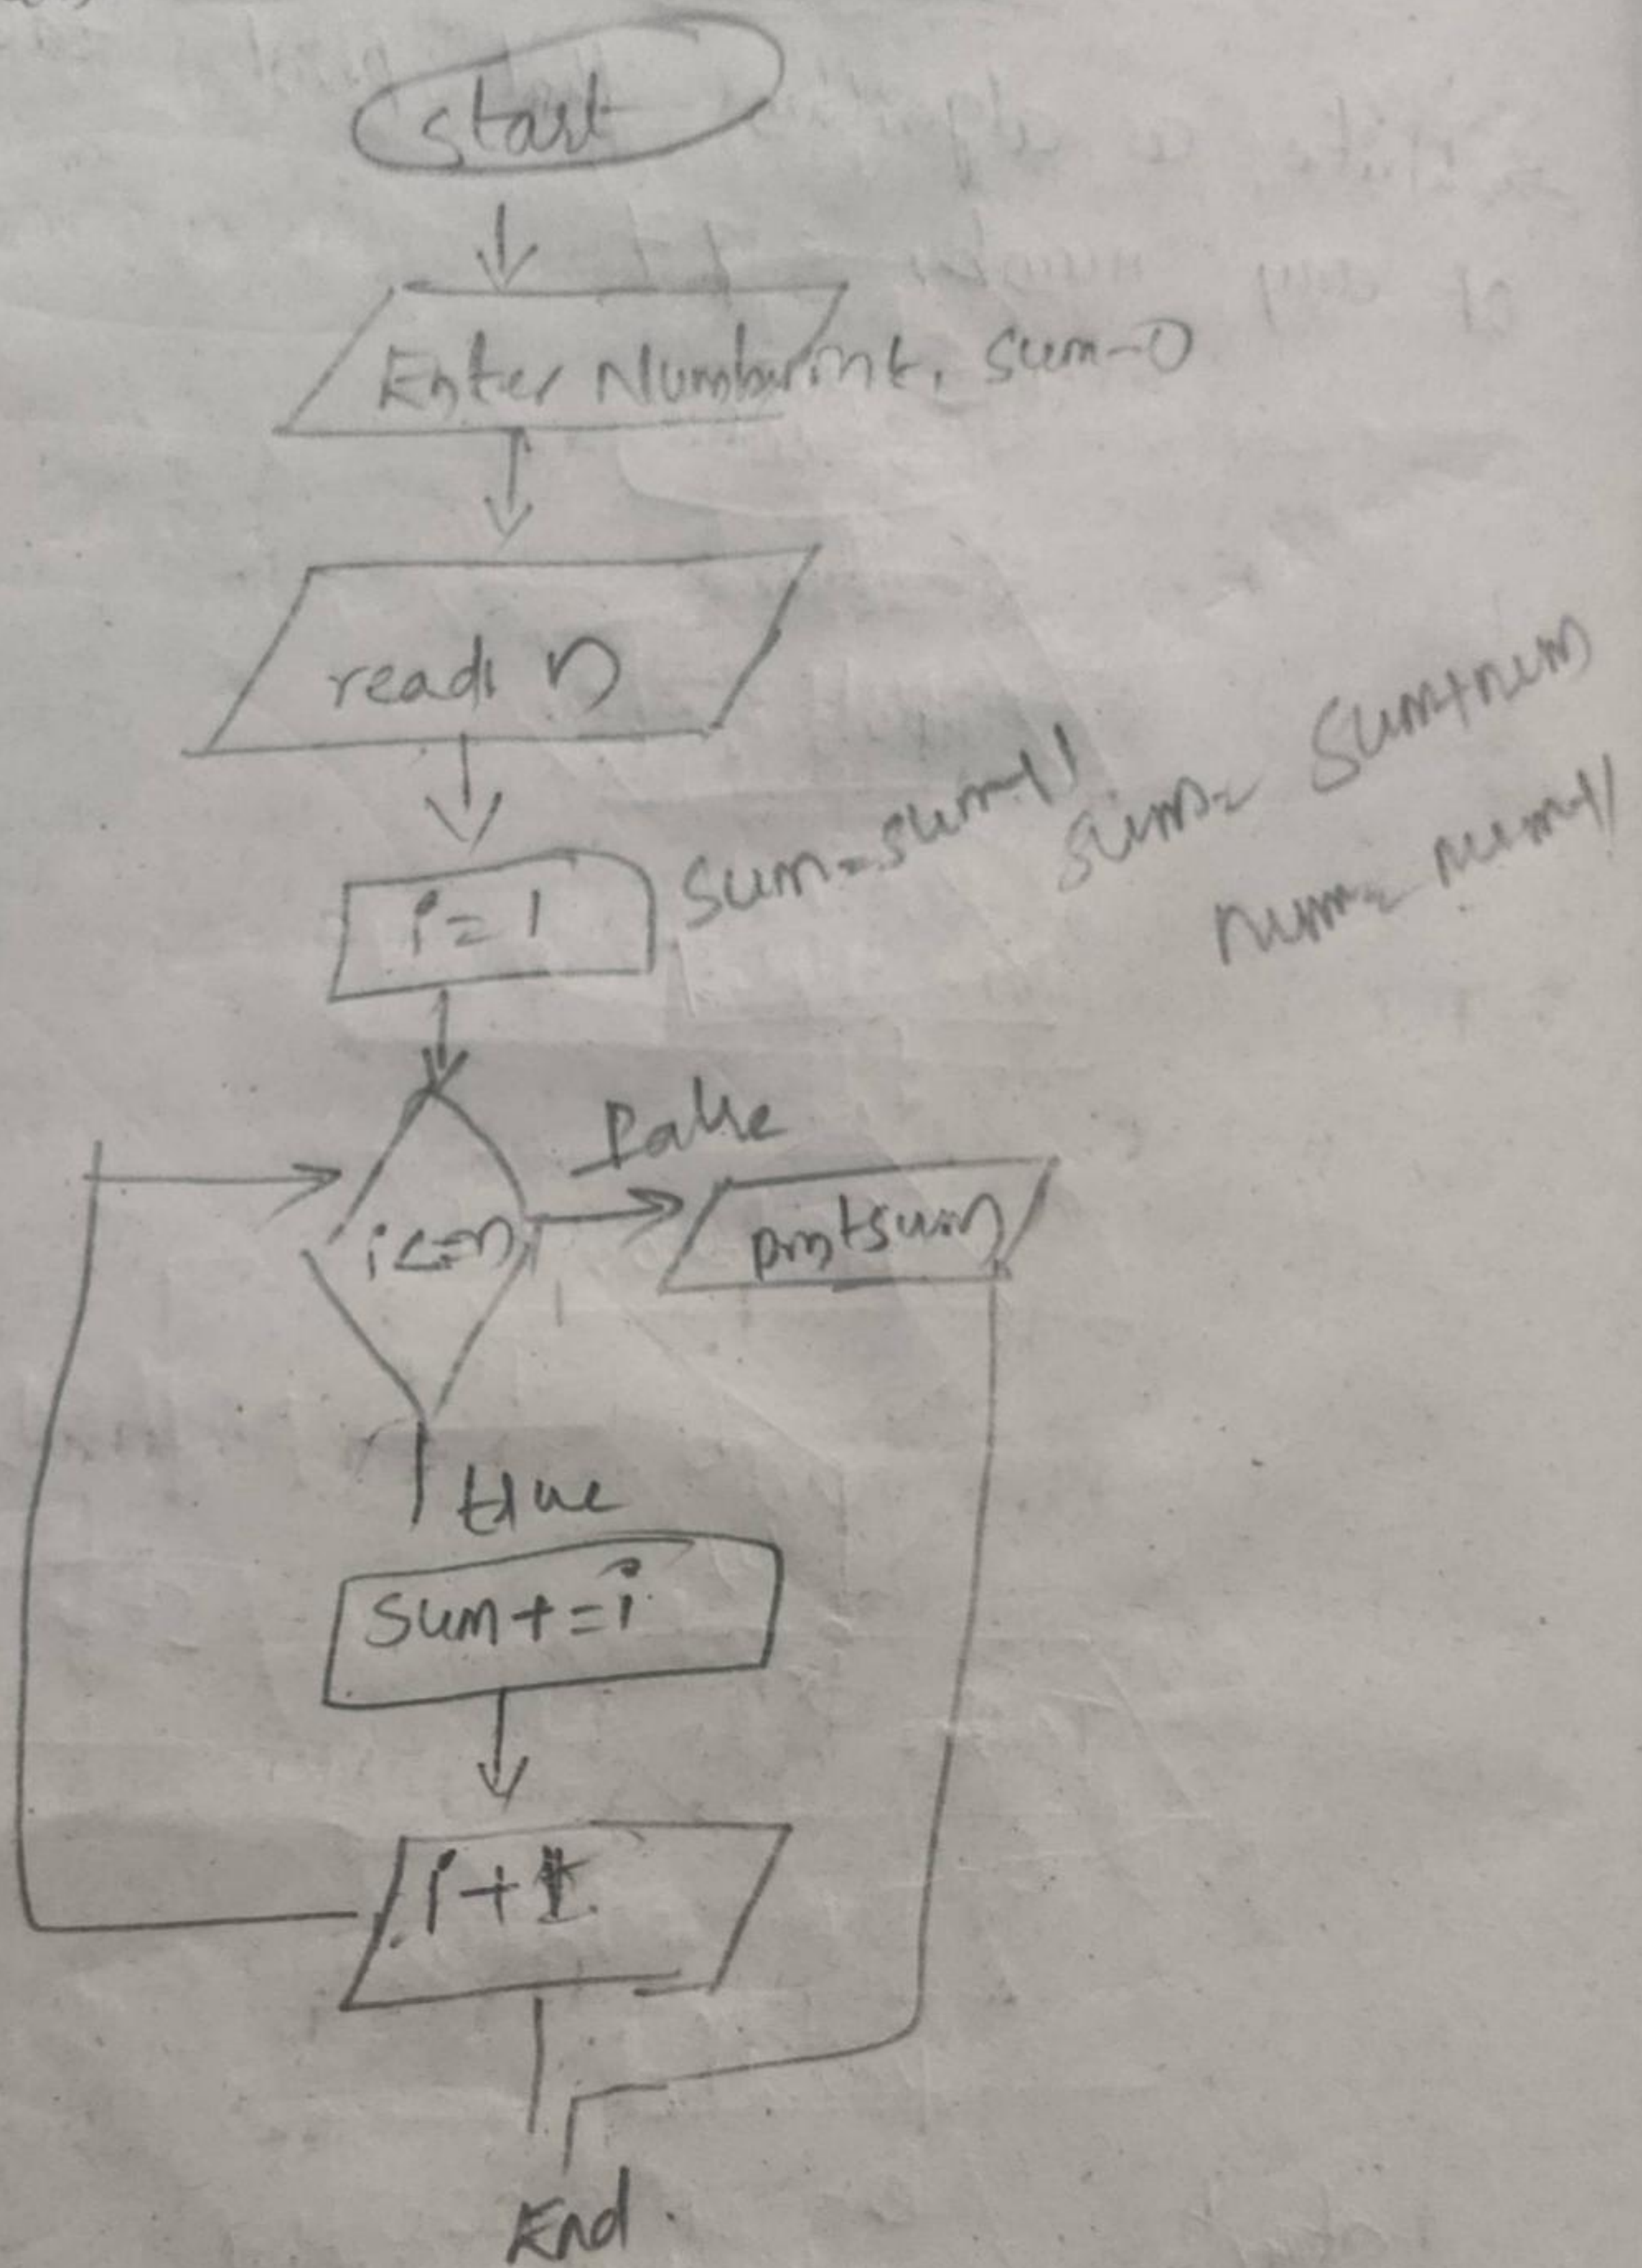 start
Enter Number int, sum=0
read n
i=1
sum=sum+1
sum= sum+num
num= num+1
false
i<=n
print sum
true
sum+=i
i+1
End.